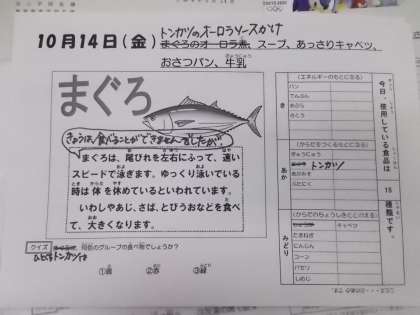 トンカツのオーロラソースがけ
10月14日(金) まぐろのオーロラ煮、スープ、あっさりキャベツ、
おさつパン、牛乳
まぐろ
きょうは、食べることができませんでしたが…
まぐろは、尾びれを左右にふって、速い
スピードで泳ぎます。ゆっくり泳いている
時は体を休めているといわれています。
いわしやあじ、さば、とびうおなどを食べ
て、大きくなります。
クイズ 何色のグループの食べ物でしょうか?
トンカツは
①黄 ②赤 ③緑
今日、使用している食品は 15 種類です。
き
(エネルギーのもとになる)
パン
でんぷん
あぶら
さとう
あか
(からだをつくるもとになる)
ぎゅうにゅう
トンカツ
ぶたにく
みどり
(からだのちょうしをととのえる)
キャベツ
たまねぎ
にんじん
コーン
パセリ
しめじ